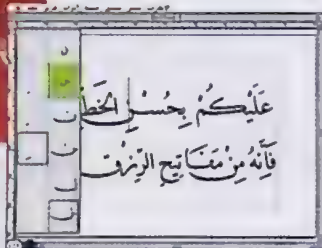 عَلَيْكُمْ بِحُسْنِ الْخَطِّ
فَإِنَّهُ مِنْ مَفَاتِيحِ الرِّزْقِ